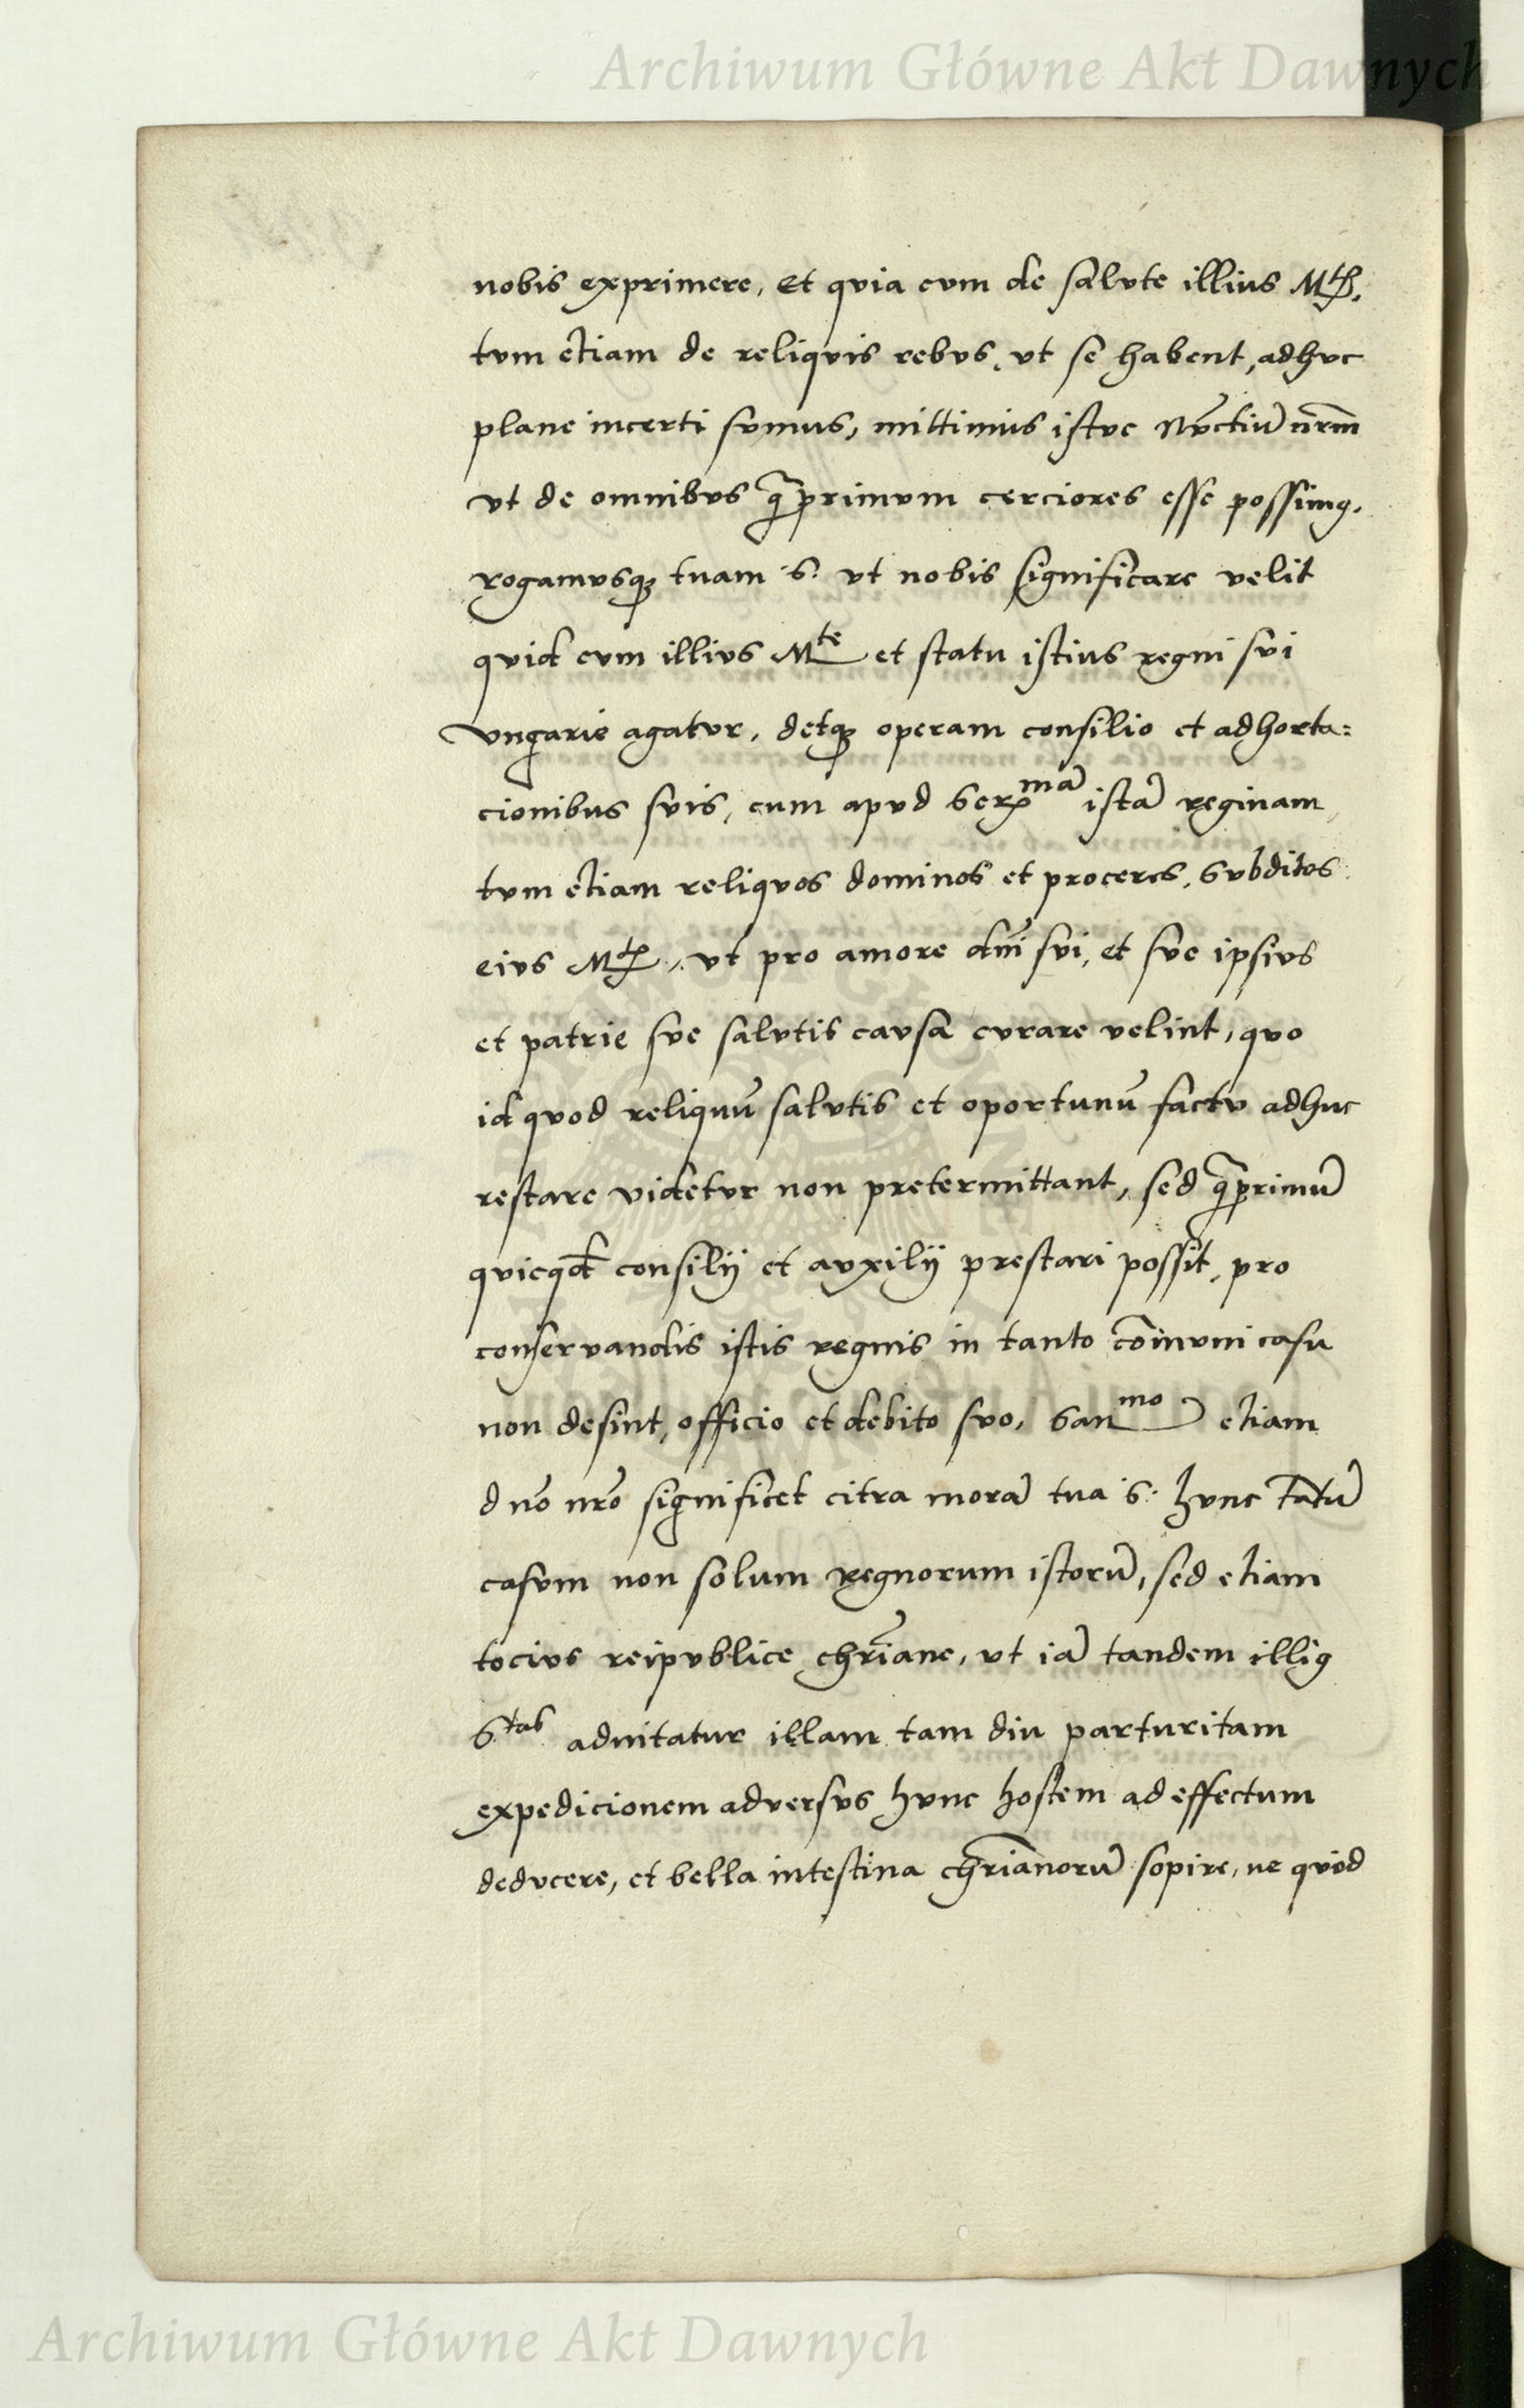 Archiwum Główne Akt Dawnych
nobis exprimere, Et quia cum de salute illius Mtis,
tum etiam de reliquis rebus, ut se habent, adhuc
plane incerti sumus, mittimus istuc Nuctiū nrm̄
ut de omnibus q̄primum cerciores esse possimꝰ,
rogamusqꝫ tuam S. ut nobis significare velit
quid cum illius Mte et statu istius regni sui
vngarie agatur, detqꝫ operam consilio et adhorta=
cionibus suis, cum apud Serma istā reginam,
tum etiam reliquos dominos et proceres, subditos
eius Mtis, ut pro amore dni sui, et sue ipsius
et patrie sue salutis causa curare velint, quo
id quod reliquū salutis et oportunū factu adhuc
restare videtur non pretermittant, sed q̄primū
quicqd consilij et auxilij prestari possit, pro
conservandis istis regnis in tanto cōmuni casu
non desint, officio et debito suo, Sanmo etiam
dno nro significet citra morā tua S. hunc tātū
casum non solum regnorum istorū, sed etiam
tocius reipublice chriane, ut iā tandem illiꝰ
Stas adnitatur illam tam diu parturitam
expedicionem adversus hunc hostem ad effectum
deducere, et bella intestina chrianorū sopire, ne quod
Archiwum Główne Akt Dawnych